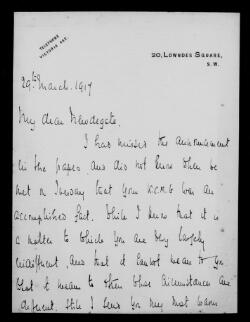 TELEPHONE
VICTORIA
20, LOWNDES SQUARE,
S.W.
29th March. 1917
My dear Newdegate.
I had missed the announcement
in the papers and did not know when we
met on Tuesday that your K.C.M.G. was an
accomplished fact. While I know that it is
a matter to which you are very largely
indifferent, and that it cannot mean to you
what it means to others whose circumstances are
different, still I send you my most warm